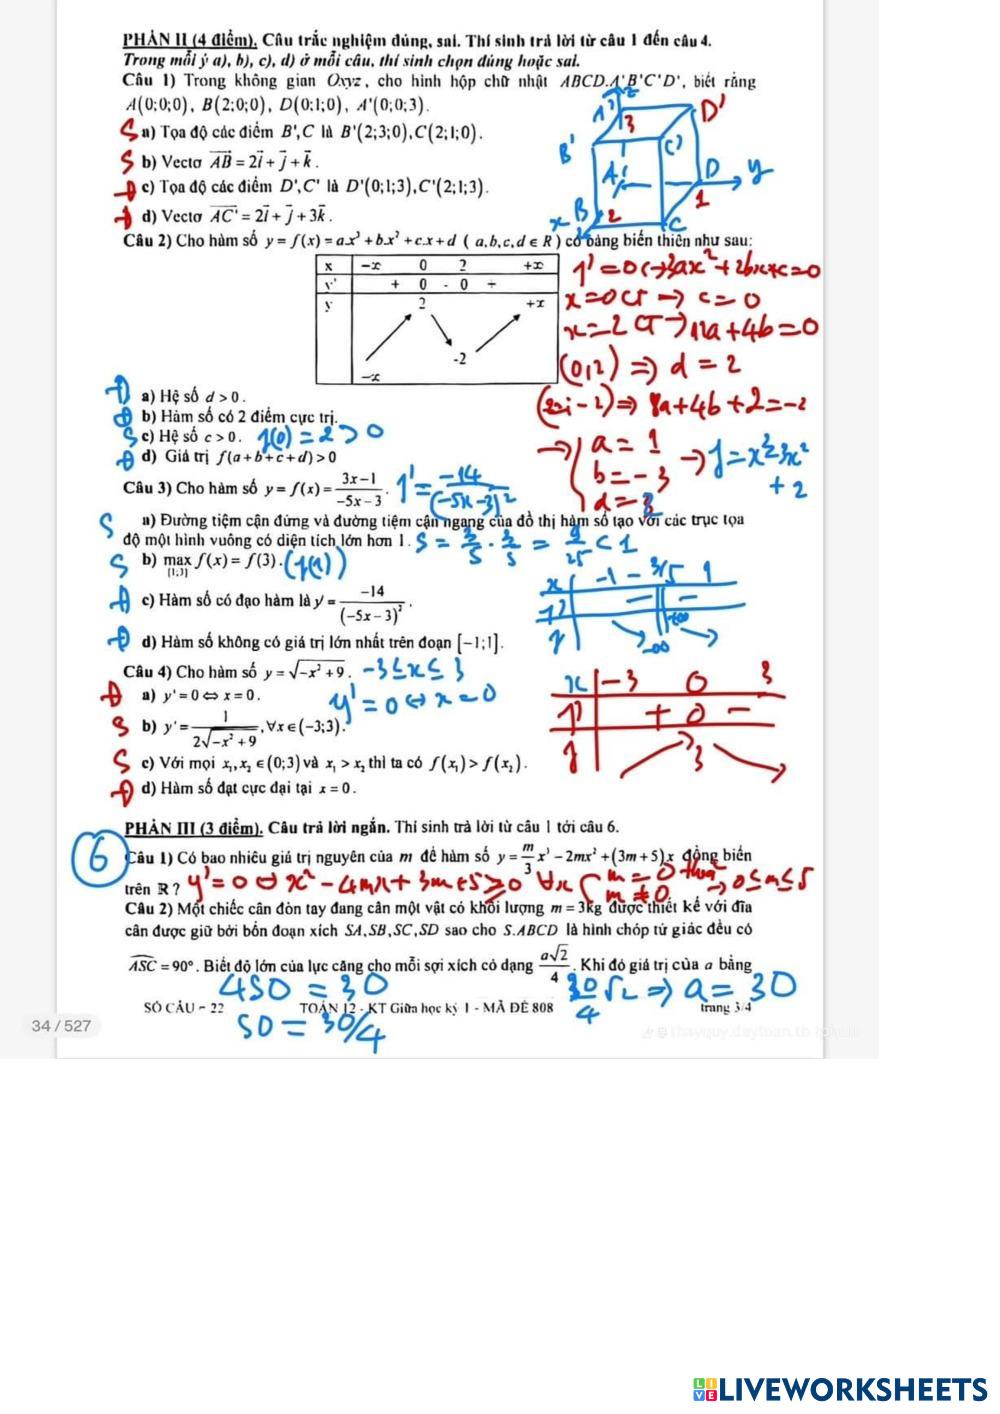 PHẦN II (4 điểm). Câu trắc nghiệm đúng, sai. Thí sinh trả lời từ câu 1 đến câu 4.
Trong mỗi ý a), b), c), d) ở mỗi câu, thí sinh chọn đúng hoặc sai.
Câu 1) Trong không gian Oxyz, cho hình hộp chữ nhật ABCD.A'B'C'D', biết rằng
A(0;0;0), B(2;0;0), D(0;1;0), A'(0;0;3).
S a) Tọa độ các điểm B', C là B'(2;3;0), C(2;1;0).
S b) Vectơ AB = 2i + j + k.
Đ c) Tọa độ các điểm D', C' là D'(0;1;3), C'(2;1;3).
Đ d) Vectơ AC' = 2i + j + 3k.
A' z D' 3 B' C' A D y 1 x B 2 C
Câu 2) Cho hàm số y = f(x) = ax³ + bx² + cx + d ( a,b,c,d ∈ R ) có bảng biến thiên như sau:
x −∞ 0 2 +∞
y' + 0 - 0 +
y 2 +∞
-2
−∞
y' = 0 <-> 3ax² + 2bx + c = 0
x = 0 CT -> c = 0
x = 2 CT -> 12a + 4b = 0
(0,2) => d = 2
(2; -2) => 8a + 4b + 2 = -2
-> { a = 1
b = -3
d = 2
-> y = x³ - 3x²
+ 2
Đ a) Hệ số d > 0.
Đ b) Hàm số có 2 điểm cực trị.
S c) Hệ số c > 0. f(0) = 2 > 0
Đ d) Giá trị f(a+b+c+d) > 0
Câu 3) Cho hàm số y = f(x) = (3x−1)/(−5x−3). y' = −14/(−5x−3)²
S a) Đường tiệm cận đứng và đường tiệm cận ngang của đồ thị hàm số tạo với các trục tọa
độ một hình vuông có diện tích lớn hơn 1. S = 3/5 . 3/5 = 9/25 < 1
S b) max f(x) = f(3). (f(1))
[1;3]
Đ c) Hàm số có đạo hàm là y' = −14/(−5x−3)².
Đ d) Hàm số không có giá trị lớn nhất trên đoạn [−1;1].
x -1 -3/5 1
y' - -
y -∞ +∞
Câu 4) Cho hàm số y = √(−x² + 9). -3 ≤ x ≤ 3
Đ a) y' = 0 ⇔ x = 0. y' = 0 ⇔ x = 0
S b) y' = 1/(2√(−x² + 9)), ∀x ∈ (−3;3).
S c) Với mọi x₁, x₂ ∈ (0;3) và x₁ > x₂ thì ta có f(x₁) > f(x₂).
Đ d) Hàm số đạt cực đại tại x = 0.
x -3 0 3
y' + 0 -
y 3
PHẦN III (3 điểm). Câu trả lời ngắn. Thí sinh trả lời từ câu 1 tới câu 6.
6
Câu 1) Có bao nhiêu giá trị nguyên của m để hàm số y = m/3 x³ − 2mx² + (3m+5)x đồng biến
trên R ? y' = 0 ⇔ x² - 4mx + 3m+5 ≥ 0 ∀x { m = 0 thoả
m ≠ 0 -> 0 ≤ m ≤ 5
Câu 2) Một chiếc cân đòn tay đang cân một vật có khối lượng m = 3kg được thiết kế với đĩa
cân được giữ bởi bốn đoạn xích SA, SB, SC, SD sao cho S.ABCD là hình chóp tứ giác đều có
ASC = 90°. Biết độ lớn của lực căng cho mỗi sợi xích có dạng a√2/4. Khi đó giá trị của a bằng
4SO = 30
30/4 √2 => a = 30
SỐ CÂU - 22 TOÁN 12 - KT Giữa học kỳ I - MÃ ĐỀ 808 trang 3/4
SO = 30/4
34 / 527
LIVEWORKSHEETS